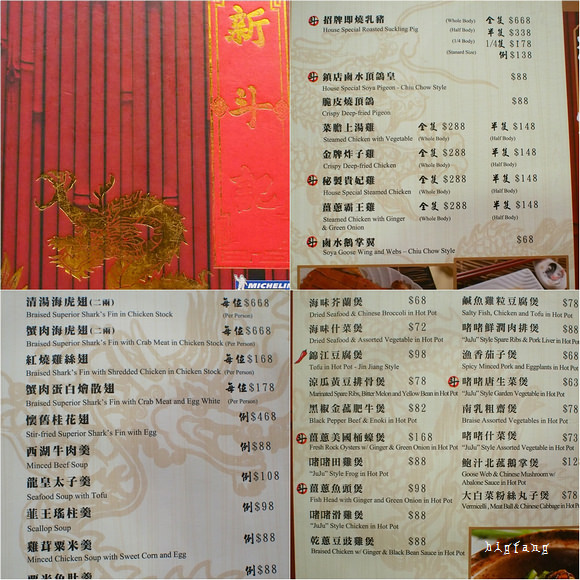 新斗記
MICHELIN
招牌即燒乳豬 (Whole Body) 全隻 $668
House Special Roasted Suckling Pig (Half Body) 半隻 $338
(1/4 Body) 1/4隻 $178
(Stuned Size) 例 $138
鎮店鹵水頂鴿皇 $88
House Special Soya Pigeon - Chiu Chow Style
脆皮燒頂鴿 $88
Crispy Deep-fried Pigeon
菜膽上湯雞 全隻 $288 半隻 $148
Steamed Chicken with Vegetable (Whole Body) (Half Body)
金牌炸子雞 全隻 $288 半隻 $148
Crispy Deep-fried Chicken (Whole Body) (Half Body)
秘製貴妃雞 全隻 $288 半隻 $148
House Special Steamed Chicken (Whole Body) (Half Body)
薑蔥霸王雞 全隻 $288 半隻 $148
Steamed Chicken with Ginger (Whole Body) (Half Body)
& Green Onion
鹵水鵝掌翼 $68
Soya Goose Wing and Webs - Chiu Chow Style
清湯海虎翅(二兩) 每位 $668
Braised Superior Shark's Fin in Chicken Stock (Per Person)
蟹肉海虎翅(二兩) 每位 $668
Braised Superior Shark's Fin with Crab Meat in Chicken Stock (Per Person)
紅燒雞絲翅 每位 $168
Braised Shark's Fin with Shredded Chicken in Chicken Stock (Per Person)
蟹肉蛋白燴散翅 每位 $178
Braised Shark's Fin with Crab Meat and Egg White (Per Person)
懷舊桂花翅 例 $468
Stir-fried Superior Shark's Fin with Egg
西湖牛肉羹 例 $88
Minced Beef Soup
龍皇太子羹 例 $108
Seafood Soup with Tofu
韮王瑤柱羹 例 $98
Scallop Soup
雞茸粟米羹 例 $88
Minced Chicken Soup with Sweet Corn and Egg
例 $88
海味芥蘭煲 $68
Dried Seafood & Chinese Broccoli in Hot Pot
海味什菜煲 $72
Dried Seafood & Assorted Vegetable in Hot Pot
錦江豆腐煲 $98
Tofu in Hot Pot - Jin Jiang Style
涼瓜黃豆排骨煲 $78
Marinated Spare Ribs, Bitter Melon and Yellow Bean in Hot Pot
黑椒金菇肥牛煲 $82
Black Pepper Beef & Enoki in Hot Pot
薑蔥美國桶蠔煲 $168
Fresh Rock Oysters w/ Ginger & Green Onion in Hot Pot
啫啫田雞煲 $88
"JuJu" Style Frog in Hot Pot
薑蔥魚頭煲 $98
Fish Head with Ginger and Green Onion in Hot Pot
啫啫滑雞煲 $88
"JuJu" Style Chicken in Hot Pot
乾蔥豆豉雞煲 $88
Braised Chicken w/ Ginger & Black Bean Sauce in Hot Pot
鹹魚雞粒豆腐煲 $78
Salty Fish, Chicken and Tofu in Hot Pot
啫啫鮮潤肉排煲 $88
"JuJu" Style Spare Ribs & Pork Liver in Hot Pot
漁香茄子煲 $68
Spicy Minced Pork and Eggplants in Hot Pot
啫啫唐生菜煲 $63
"JuJu" Style Garden Vegetable in Hot Pot
南乳粗齋煲 $78
Braise Assorted Vegetables in Hot Pot
啫啫什菜煲 $73
"JuJu" Style Assorted Vegetable in Hot Pot
鮑汁北菇鵝掌煲
Goose Web & Chinese Mushroom w/
Abalone Sauce in Hot Pot
大白菜粉絲丸子煲 $78
Vermicelli, Meat Ball & Chinese Cabbage in Hot Pot
bigfang